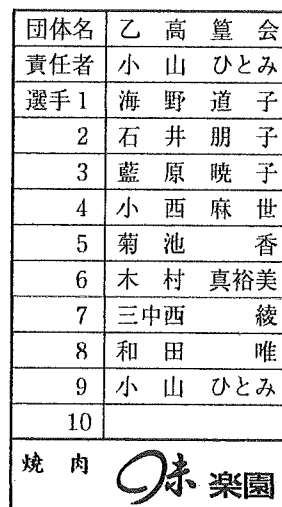 団体名 乙高篁会
責任者 小山ひとみ
選手1 海野道子
2 石井朋子
3 藍原暁子
4 小西麻世
5 菊池香
6 木村真裕美
7 三中西綾
8 和田唯
9 小山ひとみ
10
焼肉 味楽園